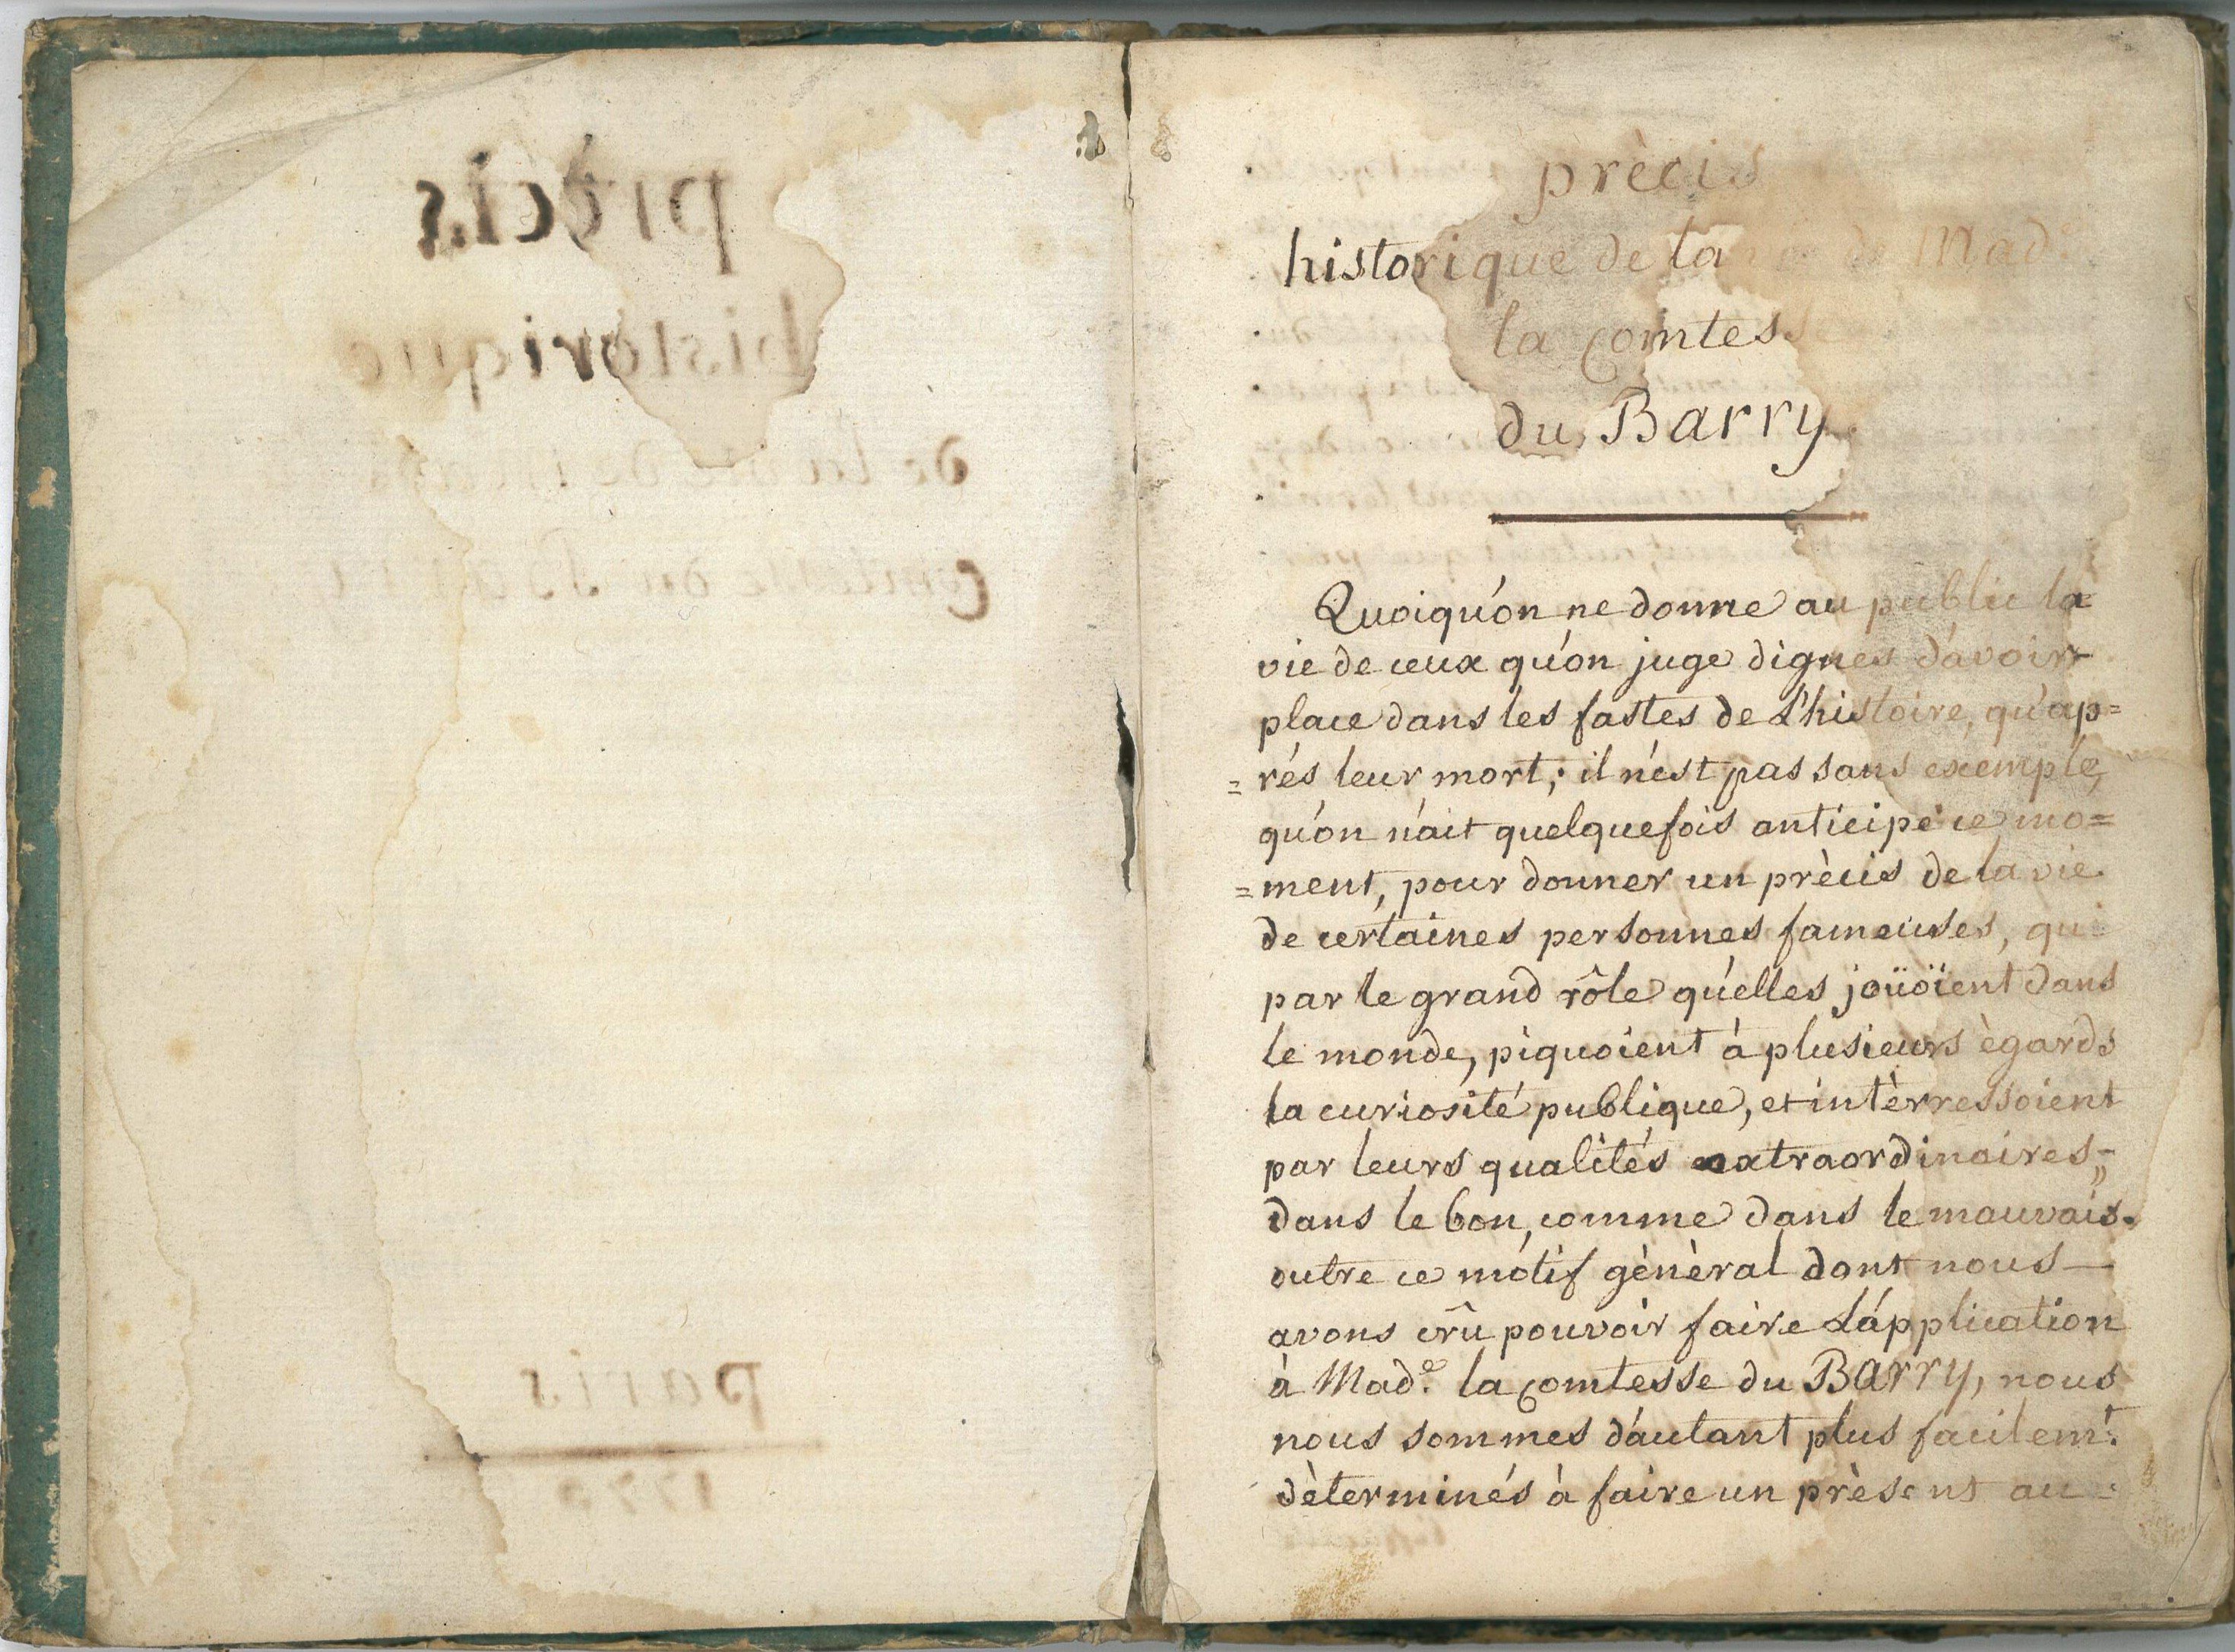 prècis
historique
de la vie de Mad.
Comtesse du Barri
paris
prècis
historique de la vie de Mad.e
la Comtesse
du Barry
Quoiqu'on ne donne au public la
vie de ceux qu'on juge dignes d'avoir
place dans les fastes de L'histoire, qu'ap=
=rés leur mort; il n'est pas sans exemple,
qu'on n'ait quelquefois anticipé ce mo=
=ment, pour donner un prècis de la vie
de certaines personnes fameuses, qui
par le grand rôle qu'elles joüoïent dans
le monde, piquoient à plusieurs ègards
la curiosité publique, et intèrressoient
par leurs qualités extraordinaires,
dans le bon, comme dans le mauvais.
outre ce motif gènèral dont nous
avons crû pouvoir faire L'application
à Mad.e la Comtesse du Barry, nous
nous sommes d'autant plus facilem.t
dèterminés à faire un prèsent au